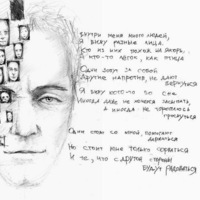 Внутри меня много людей,
Я вижу разные лица.
Кто из них похож на якорь,
А кто-то лёгок, как птица
Одни зовут за собой
Другие напротив, не дают
вернуться
Я вижу кого-то во сне
Иногда даже не хочется засыпать,
а иногда - не
проснуться
Одни стоят со мной, помогают
держаться
Но стоит мне только сорваться
И те, что с другой стороны
Будут радоваться